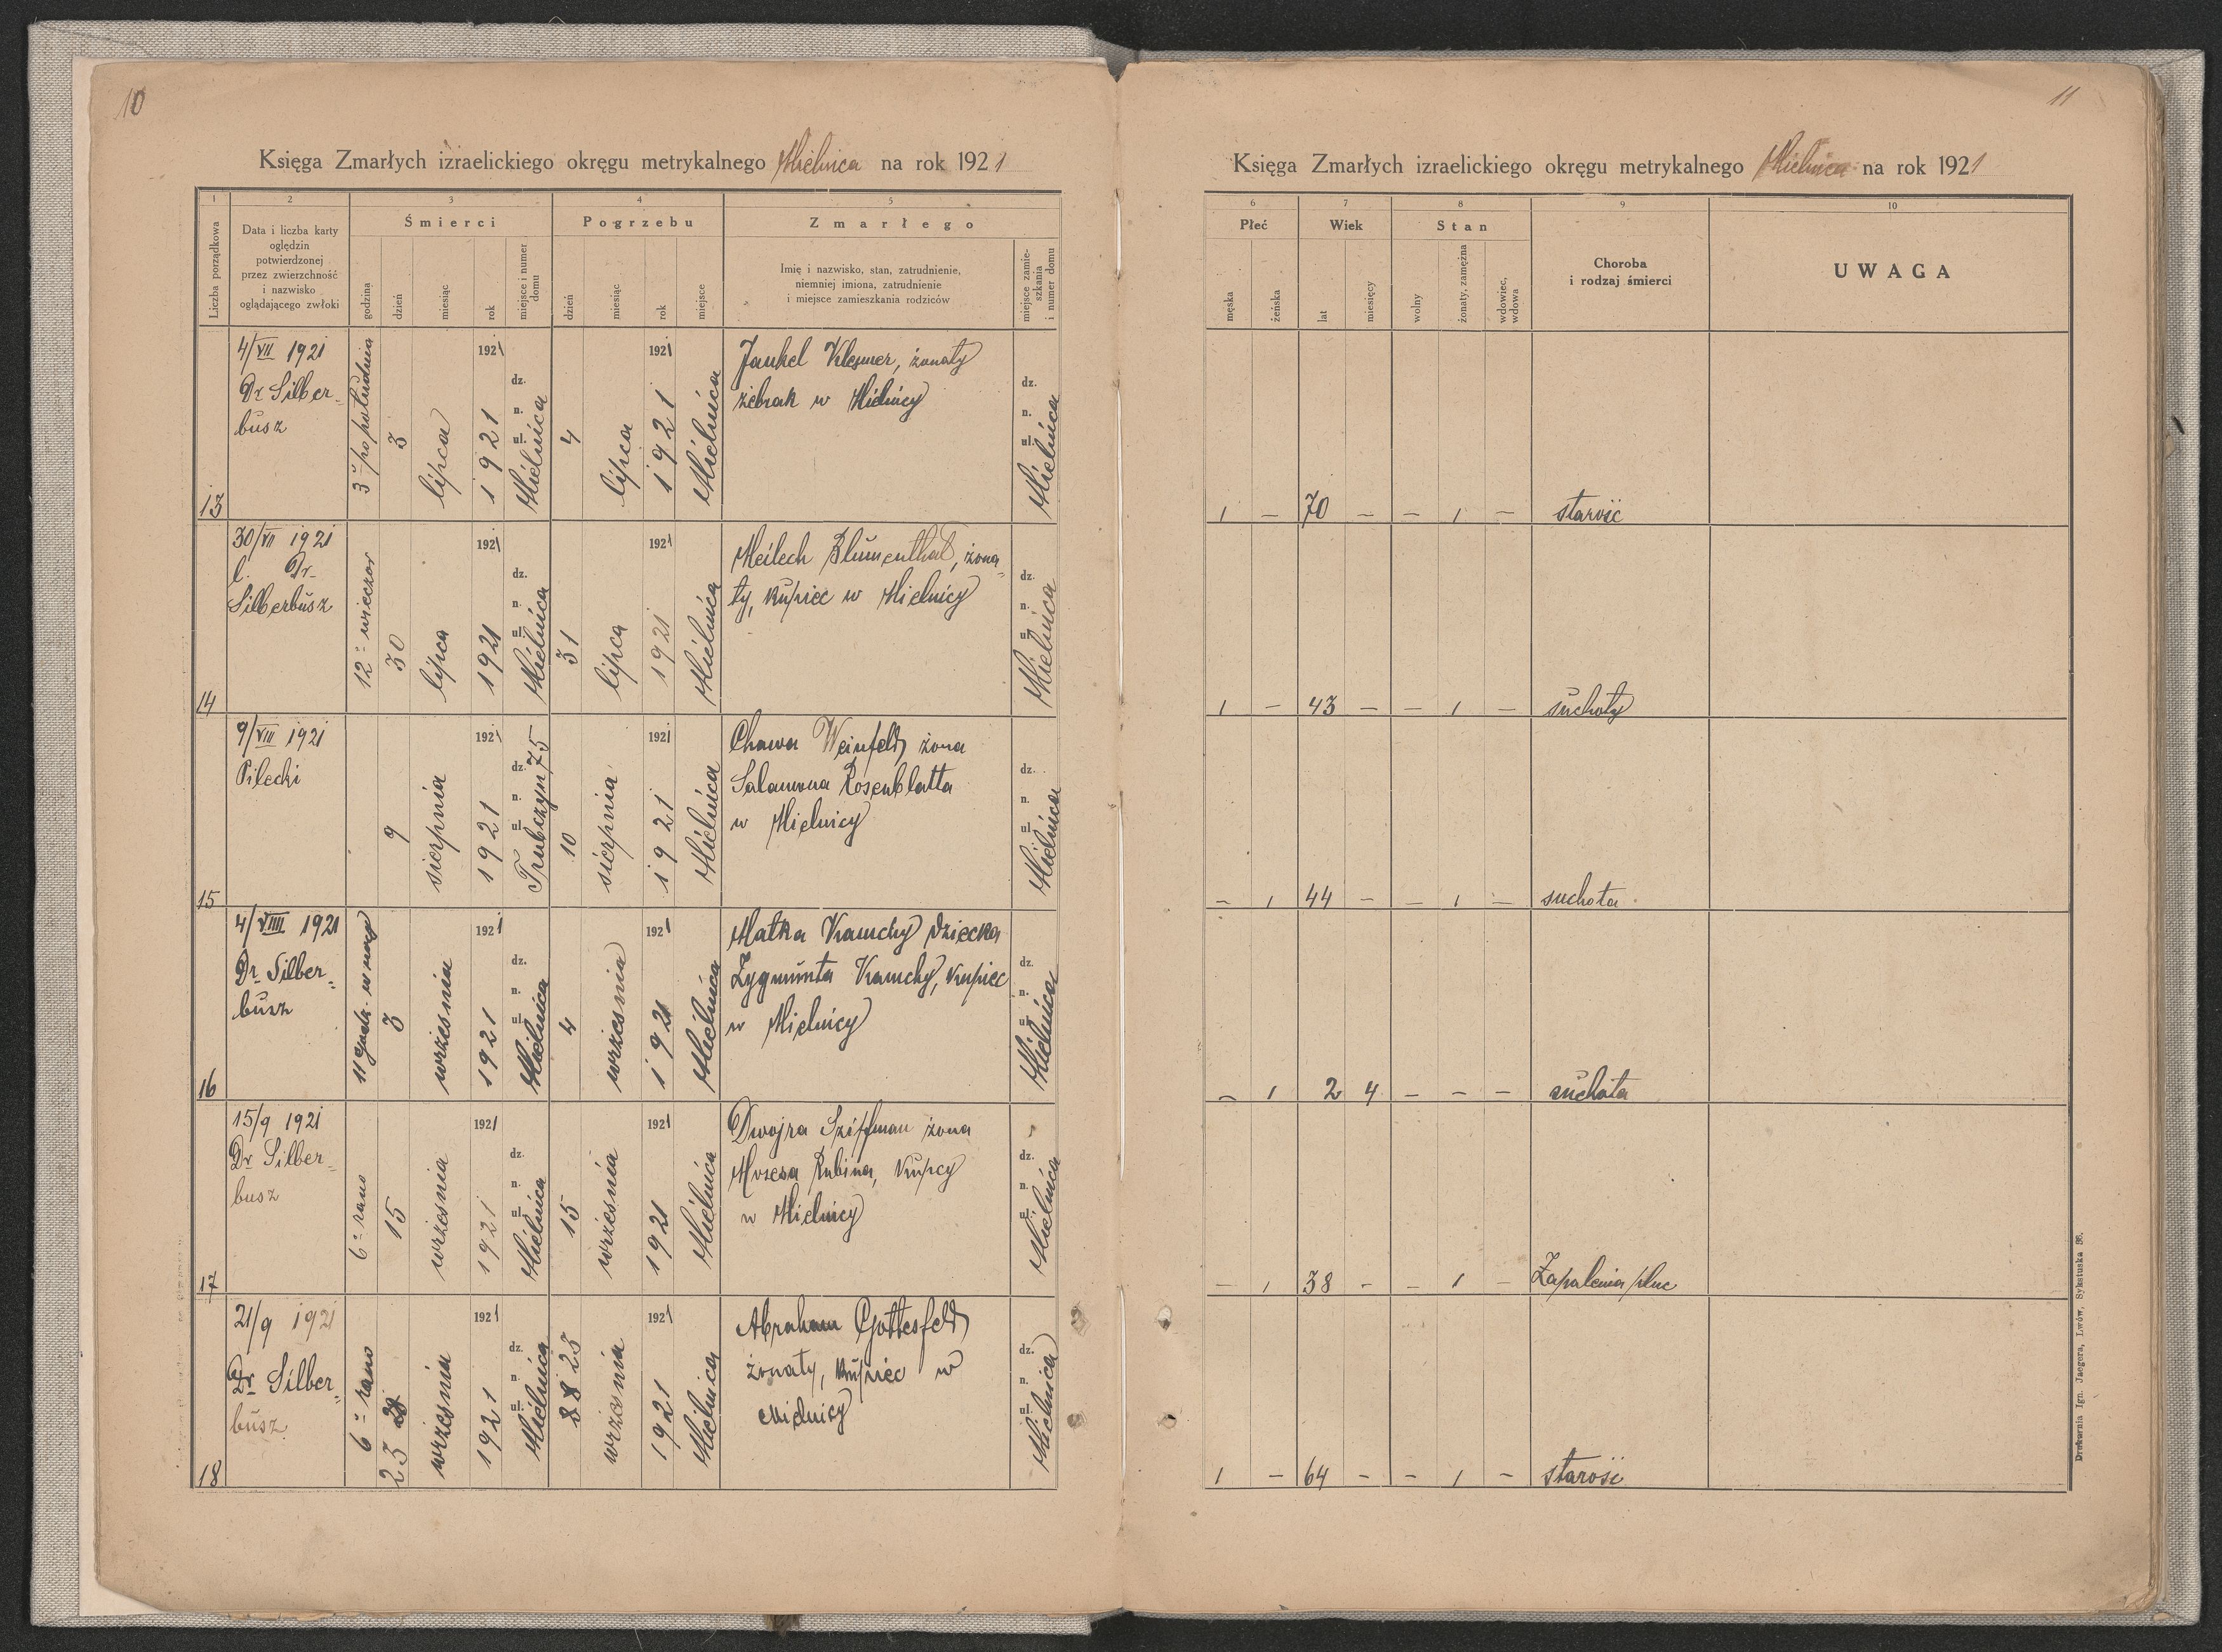 10
Księga Zmarłych izraelickiego okręgu metrykalnego Mielnica na rok 1921
1
2
3
4
5
Liczba porządkowa
Data i liczba karty
oględzin
potwierdzonej
przez zwierzchność
i nazwisko
oglądającego zwłoki
Śmierci
godzina
dzień
miesiąc
rok
miejsce i numer
domu
Pogrzebu
dzień
miesiąc
rok
miejsce
Zmarłego
Imię i nazwisko, stan, zatrudnienie,
niemniej imiona, zatrudnienie
i miejsce zamieszkania rodziców
miejsce zamie-
szkania
i numer domu
13
4/VII 1921
Dr Silber-
busz
3 po południa
3
lipca
1921
1921
dz.
n.
ul.
Mielnica
4
lipca
1921
1921
Mielnica
Jankel Klesmer, żonaty
żebrak w Mielnicy
dz.
n.
ul.
Mielnica
14
30/VII 1921
l. Dr
Silberbusz
12 wieczor
30
lipca
1921
1921
dz.
n.
ul.
Mielnica
31
lipca
1921
1921
Mielnica
Meilech Blumenthal, żona-
ty, kupiec w Mielnicy
dz.
n.
ul.
Mielnica
15
9/VIII 1921
Pilecki
9
sierpnia
1921
1921
dz.
n.
ul.
Trubczyn 75
10
sierpnia
1921
1921
Mielnica
Chawa Weinfeld, żona
Salamona Rosenblatta
w Mielnicy
dz.
n.
ul.
Mielnica
16
4/VIIII 1921
Dr Silber-
busz
11 w nocy
3
wrzesnia
1921
1921
dz.
n.
ul.
Mielnica
4
wrzesnia
1921
1921
Mielnica
Matka Kamchy dziecka
Zygmunta Kamchy, kupiec
w Mielnicy
dz.
n.
ul.
Mielnica
17
15/9 1921
Dr Silber-
busz
6 rano
15
wrzesnia
1921
1921
dz.
n.
ul.
Mielnica
15
wrzesnia
1921
1921
Mielnica
Dwojra Sziffman żona
Mozesa Rubina, kupcy
w Mielnicy
dz.
n.
ul.
Mielnica
18
21/9 1921
Dr Silber-
busz
6 rano
23
wrzesnia
1921
1921
dz.
n.
ul.
Mielnica
23
wrzesnia
1921
1921
Mielnica
Abraham Gottesfeld
żonaty, kupiec w
Mielnicy
dz.
n.
ul.
Mielnica
11
Księga Zmarłych izraelickiego okręgu metrykalnego Mielnica na rok 1921
6
7
8
9
10
Płeć
męska
żeńska
Wiek
lat
miesięcy
Stan
wolny
żonaty, zamężna
wdowiec,
wdowa
Choroba
i rodzaj śmierci
UWAGA
1 – 70 – – 1 – starość
1 – 43 – – 1 – suchoty
– 1 44 – – 1 – suchota
– 1 2 4 – – – suchota
– 1 38 – – 1 – Zapalenia płuc
1 – 64 – – 1 – starość
Drukarnia Ign. Jaegera, Lwów, Sykstuska